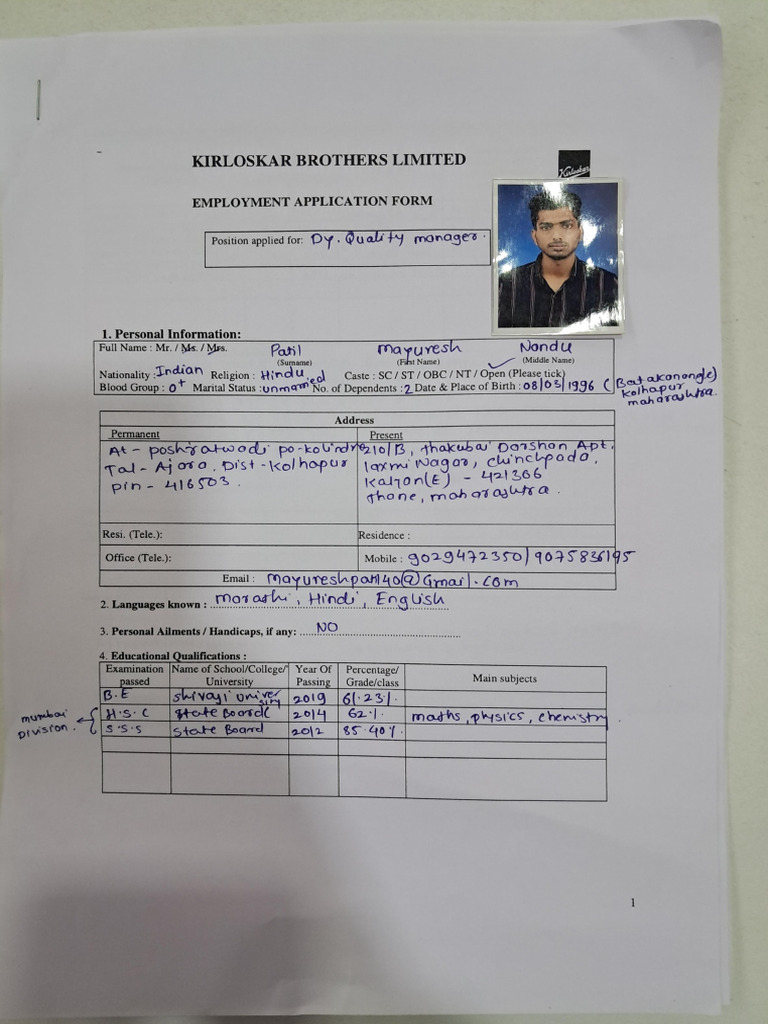 KIRLOSKAR BROTHERS LIMITED
Kirloskar
EMPLOYMENT APPLICATION FORM
Position applied for: Dy. Quality manager.
1. Personal Information:
Full Name : Mr. / Ms. / Mrs. Patil Mayuresh Nandu
(Surname) (First Name) (Middle Name)
Nationality : Indian Religion : Hindu Caste : SC / ST / OBC / NT / Open (Please tick)
Blood Group : O+ Marital Status : unmarried No. of Dependents : 2 Date & Place of Birth : 08/03/1996 (Batakanangle)
kolhapur
maharashtra.
Address
Permanent Present
At - poshratwadi po-kolindre 210/B, thakubai Darshan Apt.
Tal - Ajara, Dist - Kolhapur laxmi Nagar, chinchpada,
pin - 416503. Kalyan(E) - 421306
thane, maharashtra.
Resi. (Tele.): Residence :
Office (Tele.): Mobile : 9029472350/9075836195
Email : mayureshpatil40@Gmail.com
2. Languages known : marathi, Hindi, English
3. Personal Ailments / Handicaps, if any: NO
4. Educational Qualifications :
Examination passed Name of School/College/ University Year Of Passing Percentage/ Grade/class Main subjects
B.E Shivaji university 2019 61.23%
mumbai Division. H.S.C State Board 2014 62% maths, physics, chemistry
S.S.S State Board 2012 85.40%
1